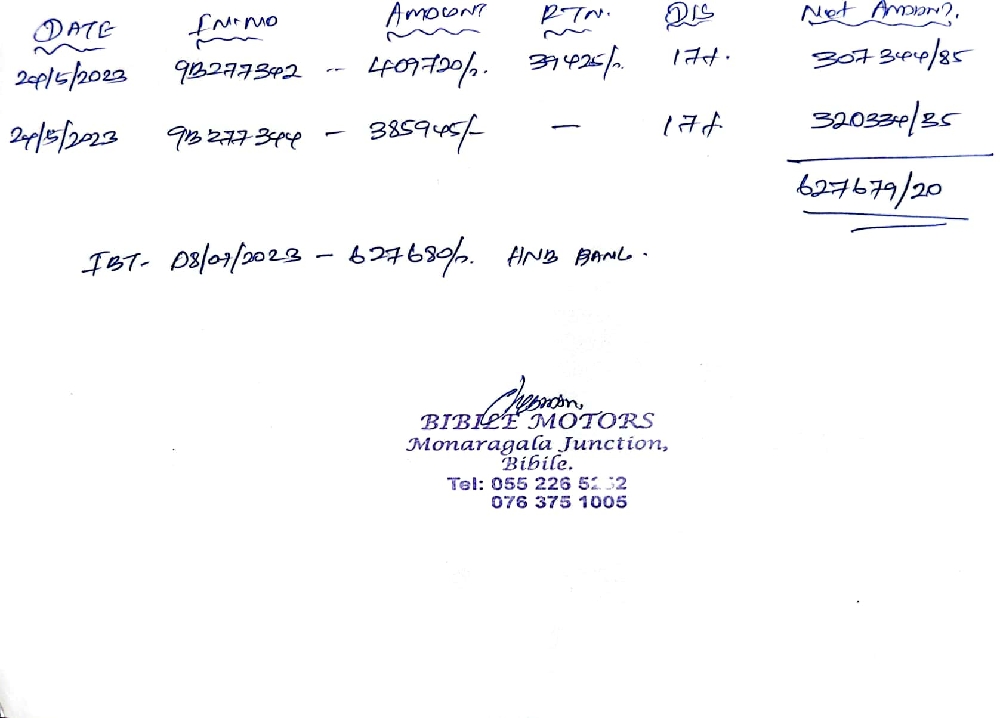 DATE INV.NO AMOUNT RTN. DIS Net Amount.
24/5/2023 9B277342 -- 409720/- 39425/- 17%. 307344/85
24/5/2023 9B277344 - 385945/- - 17% 320334/35
627679/20
IBT- 08/07/2023 - 627680/-. HNB BANK.
BIBILE MOTORS
Monaragala Junction,
Bibile.
Tel: 055 226
076 375 1005